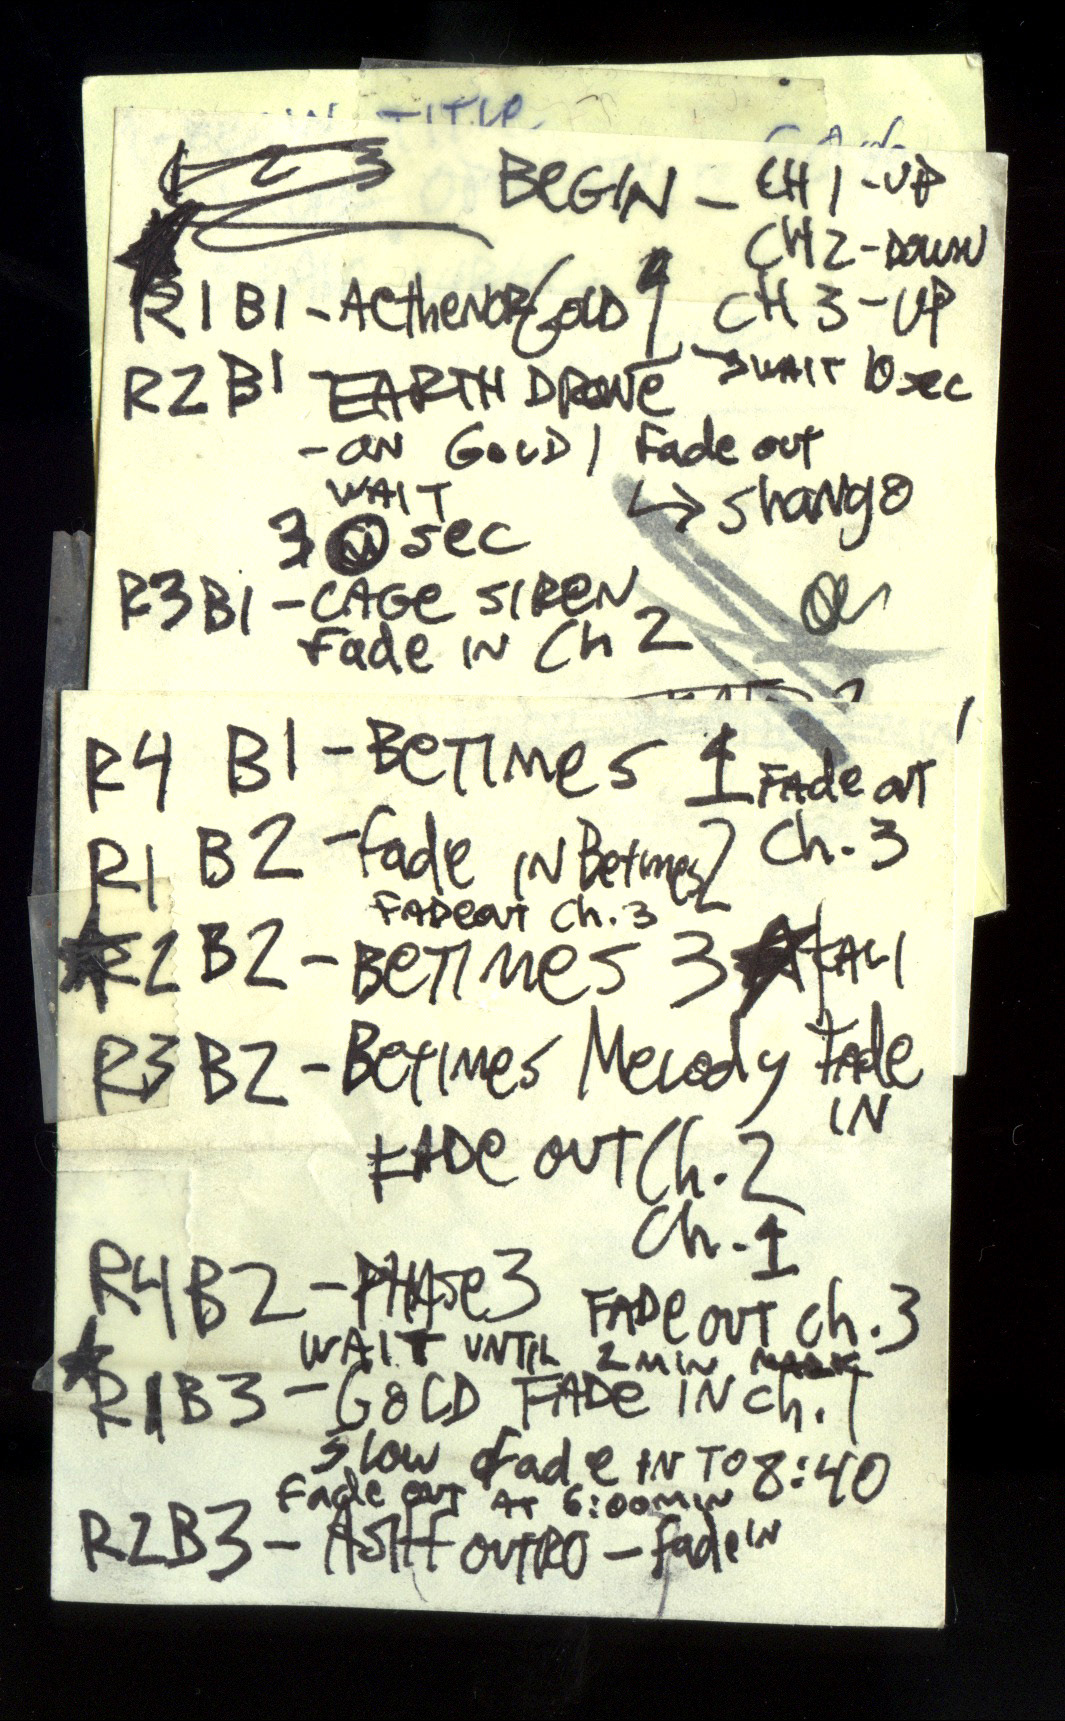 TITLE
BEGIN - CH 1 - UP
CH 2 - DOWN
R1 B1 - AETHENOR GOLD 1 CH 3 - UP
R2 B1 - EARTH DRONE → WAIT 10 sec
- ON GOLD 1 Fade out
WAIT ↳ Shango
30 sec
R3 B1 - CAGE SIREN
Fade IN Ch 2
R4 B1 - BETIMES 1 FADE OUT
Ch. 3
R1 B2 - fade IN Betimes 2
FADEOUT Ch. 3
R2 B2 - BETIMES 3 ★ KALI
R3 B2 - Betimes Melody Fade
IN
FADE OUT Ch. 2
Ch. 1
R4 B2 - PHASE 3 FADE OUT Ch. 3
WAIT UNTIL 2 MIN MARK
R1 B3 - GOLD FADE IN Ch. 1
SLOW fade IN TO 8:40
Fade out AT 6:00 MIN
R2 B3 - ASH OUTRO - fade IN